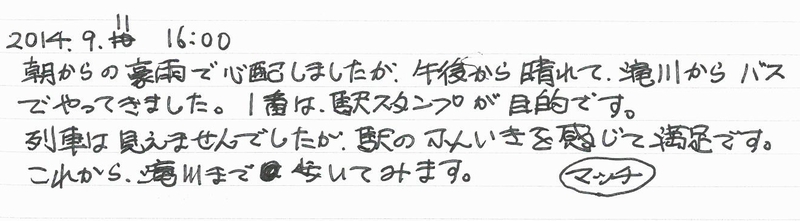 2014.9.11 16:00
朝からの豪雨で心配しましたが、午後から晴れて、滝川からバス
でやってきました。1番は、駅スタンプが目的です。
列車は見えませんでしたが、駅のふんいきを感じて満足です。
これから、滝川まで歩いてみます。 マッチ